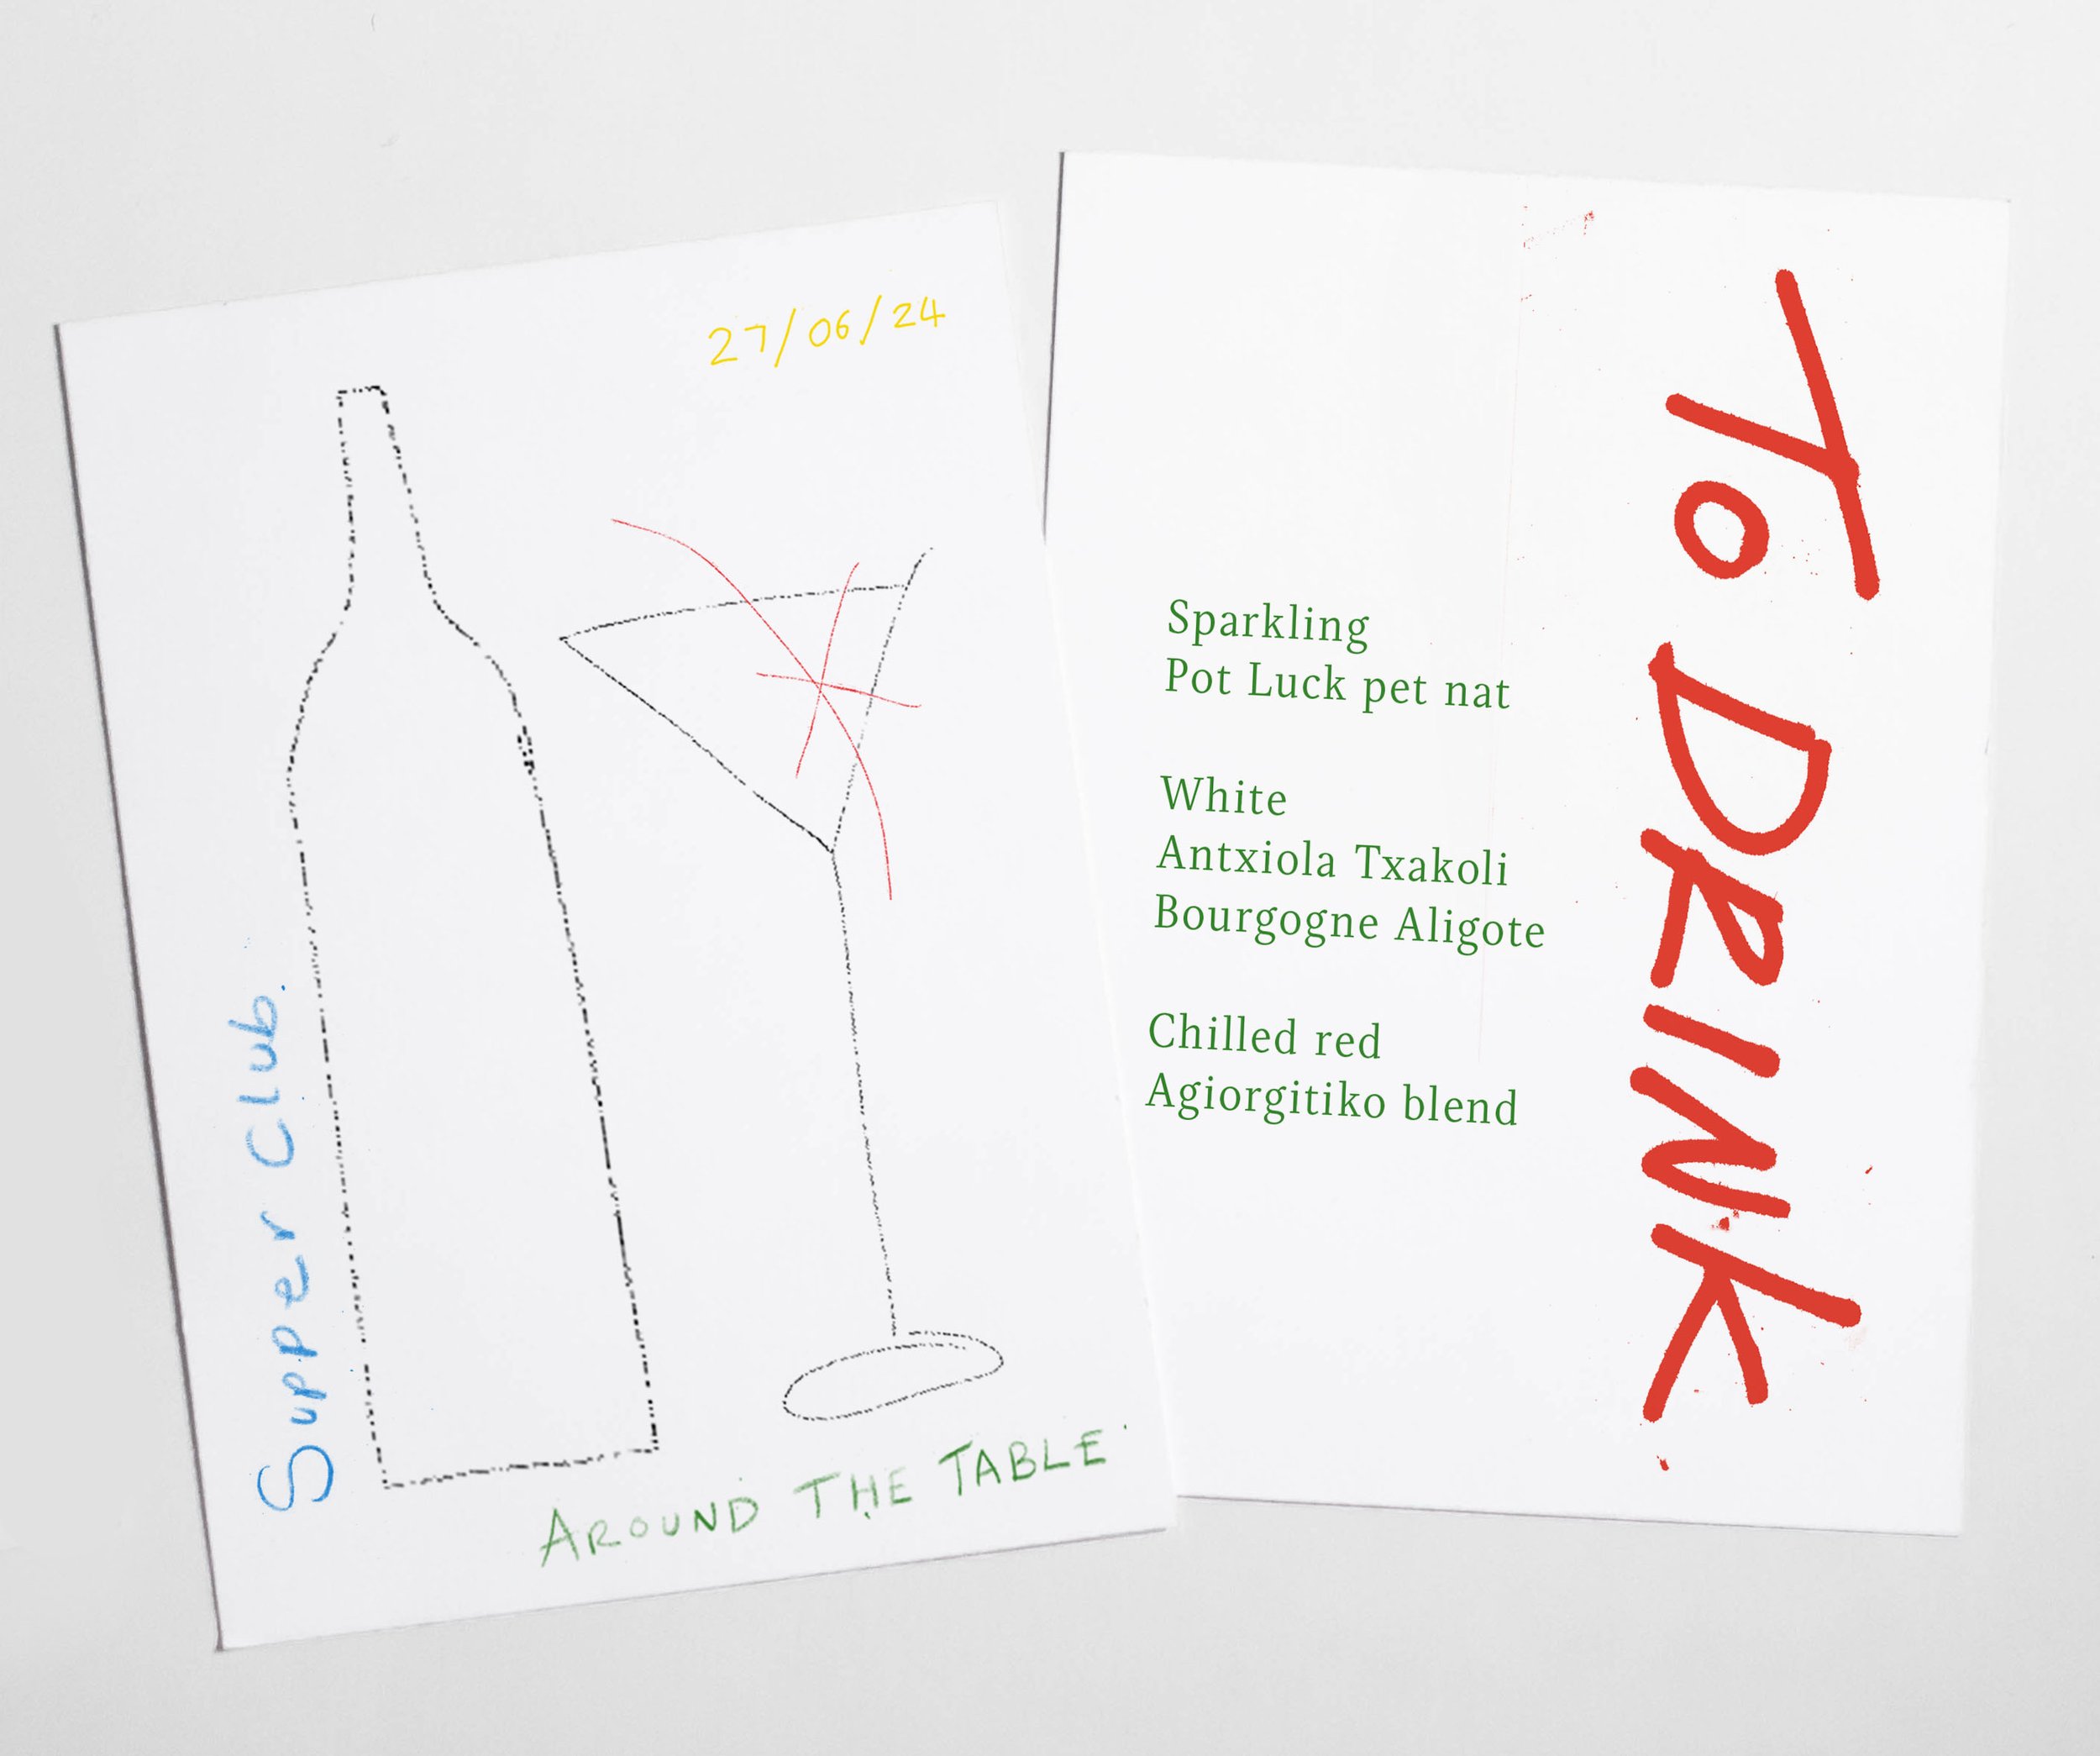 27/06/24
Supper Club.
AROUND THE TABLE.
TO DRINK.
Sparkling
Pot Luck pet nat
White
Antxiola Txakoli
Bourgogne Aligote
Chilled red
Agiorgitiko blend